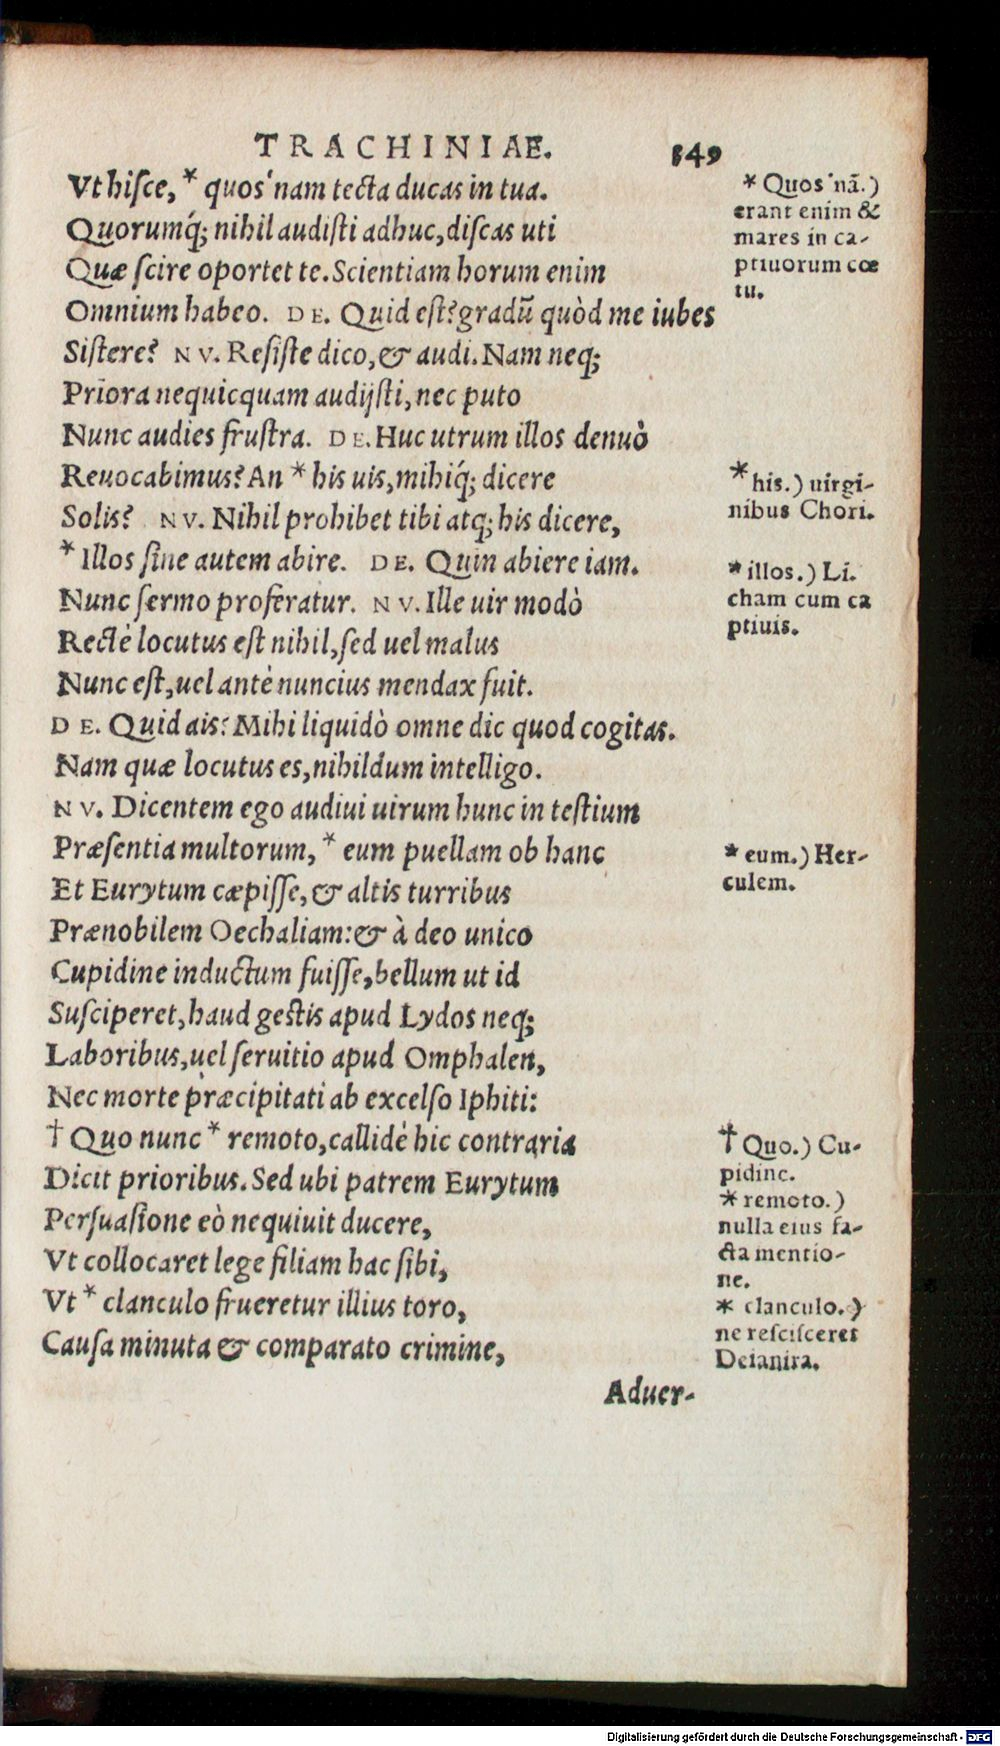 TRACHINIAE. 349
Vt hiſce, * quos'nam tecta ducas in tua.
Quorumq́; nihil audiſti adhuc, diſcas uti
Quæ ſcire oportet te. Scientiam horum enim
Omnium habeo. DE. Quid eſt? gradũ quòd me iubes
Siſtere? NV. Reſiſte dico, & audi. Nam neq;
Priora nequicquam audijſti, nec puto
Nunc audies fruſtra. DE. Huc utrum illos denuò
Reuocabimus? An * his uis, mihiq́; dicere
Solis? NV. Nihil prohibet tibi atq; his dicere,
* Illos ſine autem abire. DE. Quin abiere iam.
Nunc ſermo proferatur. NV. Ille uir modò
Rectè locutus eſt nihil, ſed uel malus
Nunc eſt, uel antè nuncius mendax fuit.
DE. Quid ais? Mihi liquidò omne dic quod cogitas.
Nam quæ locutus es, nihildum intelligo.
NV. Dicentem ego audiui uirum hunc in teſtium
Præſentia multorum, * eum puellam ob hanc
Et Eurytum cæpiſſe, & altis turribus
Prænobilem Oechaliam: & à deo unico
Cupidine inductum fuiſſe, bellum ut id
Suſciperet, haud geſtis apud Lydos neq;
Laboribus, uel ſeruitio apud Omphalen,
Nec morte præcipitati ab excelſo Iphiti:
† Quo nunc * remoto, callidè hic contraria
Dicit prioribus. Sed ubi patrem Eurytum
Perſuaſione eò nequiuit ducere,
Vt collocaret lege filiam hac ſibi,
Vt * clanculo frueretur illius toro,
Cauſa minuta & comparato crimine,
Aduer-
* Quos'nã.)
erant enim &
mares in ca-
ptiuorum cœ
tu.
* his.) uirgi-
nibus Chori.
* illos.) Li.
cham cum ca
ptiuis.
* eum.) Her-
culem.
† Quo.) Cu-
pidine.
* remoto.)
nulla eius fa-
cta mentio-
ne.
* clanculo.)
ne reſciſceret
Deianira.
Digitalisierung gefördert durch die Deutsche Forschungsgemeinschaft - DFG